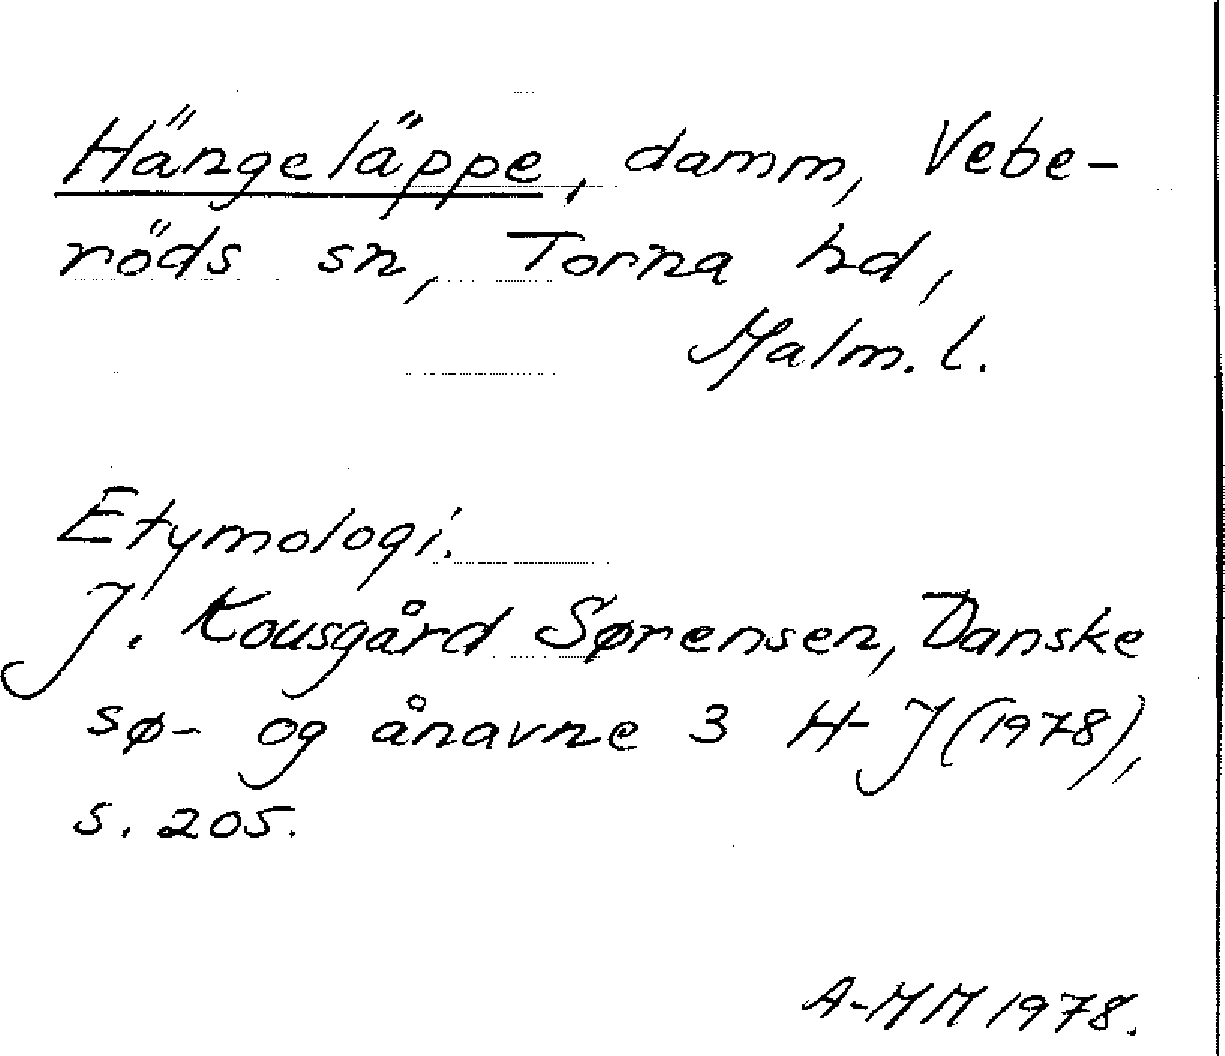 Hängeläppe, damm, Vebe-
röds sn, Torna hd,
Malm. l.
Etymologi.
J. Kousgård Sørensen, Danske
sø- og ånavne 3 H-J (1978),
s. 205.
A-MM 1978.